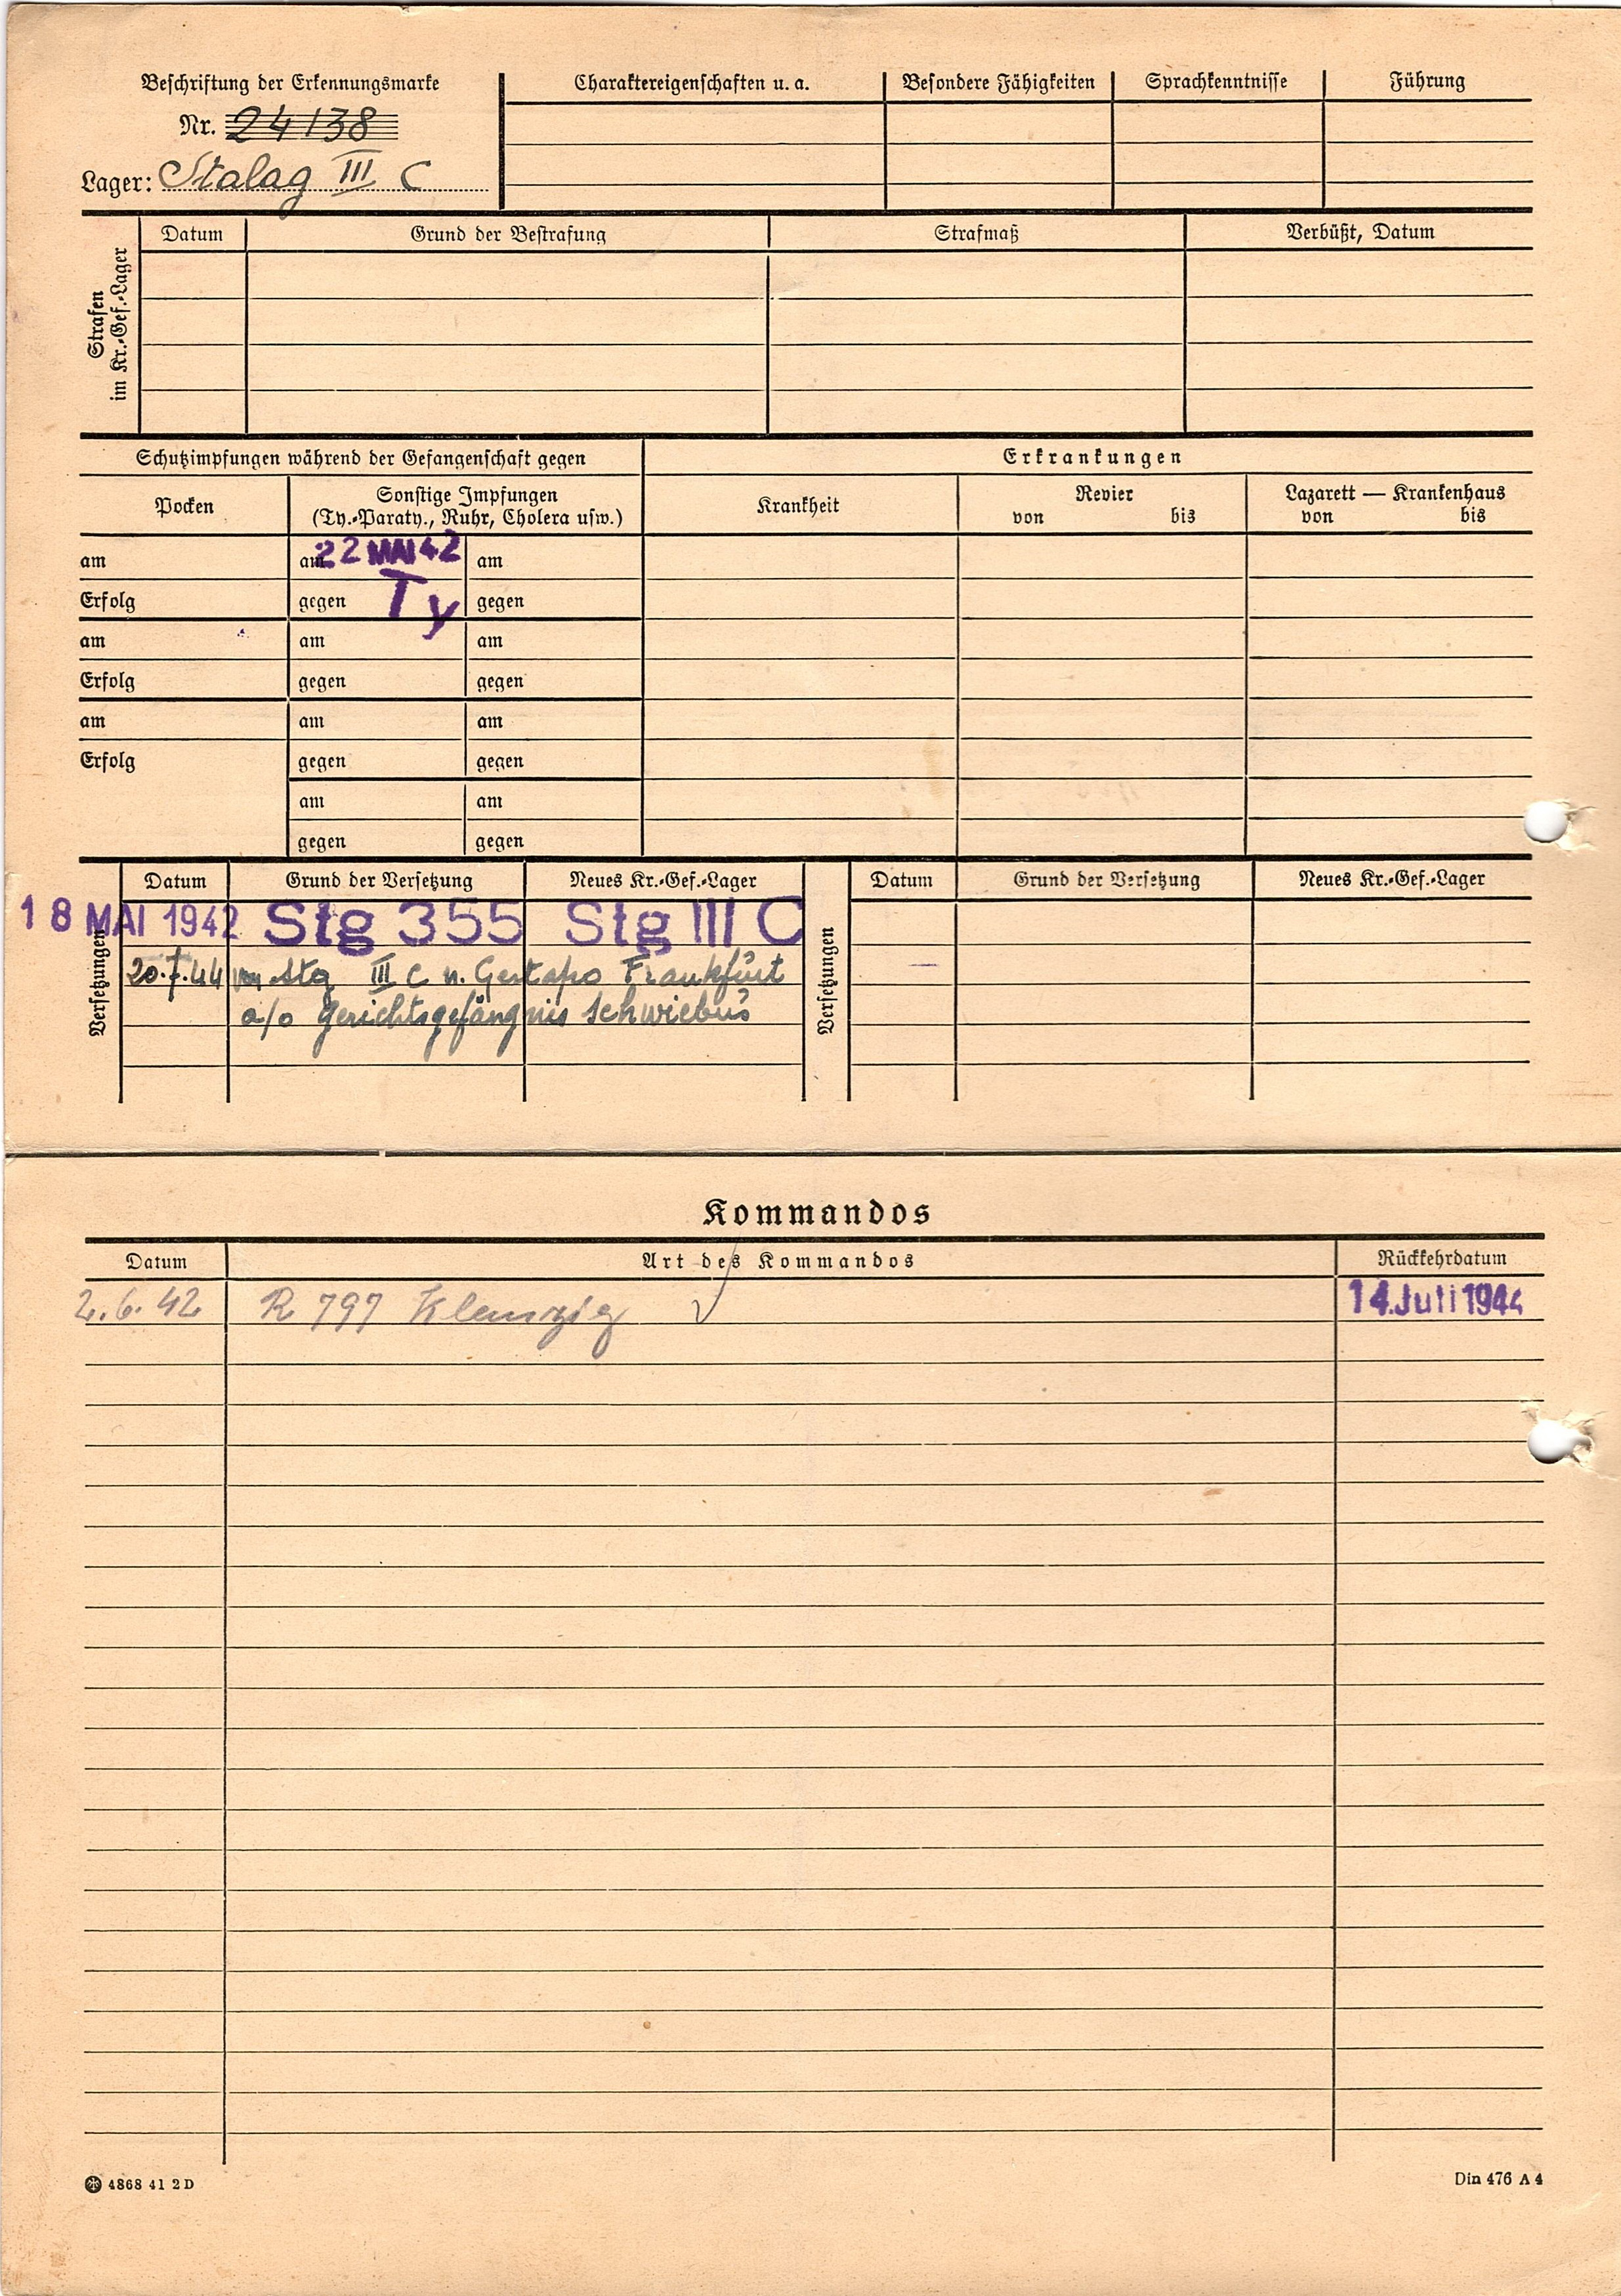 Beschriftung der Erkennungsmarke
Nr. 24138
Lager: Stalag III C
Charaktereigenschaften u. a.
Besondere Fähigkeiten
Sprachkenntnisse
Führung
Strafen
im Kr.-Gef.-Lager
Datum
Grund der Bestrafung
Strafmaß
Verbüßt, Datum
Schutzimpfungen während der Gefangenschaft gegen
Erkrankungen
Pocken
Sonstige Impfungen
(Ty.-Paraty., Ruhr, Cholera usw.)
Krankheit
Revier
von bis
Lazarett — Krankenhaus
von bis
am am 22 MAI 42 am
Erfolg gegen Ty gegen
am am am
Erfolg gegen gegen
am am am
Erfolg gegen gegen
am am
gegen gegen
Versetzungen
Datum Grund der Versetzung Neues Kr.-Gef.-Lager
18 MAI 1942 Stg 355 Stg III C
20.7.44 von Stg III C n. Gestapo Frankfurt
a/o Gerichtsgefängnis Schwiebus
Versetzungen
Datum Grund der Versetzung Neues Kr.-Gef.-Lager
Kommandos
Datum Art des Kommandos Rückkehrdatum
2.6.42 R 797 Klemzig 14. Juli 1944
4868 41 2 D
Din 476 A 4